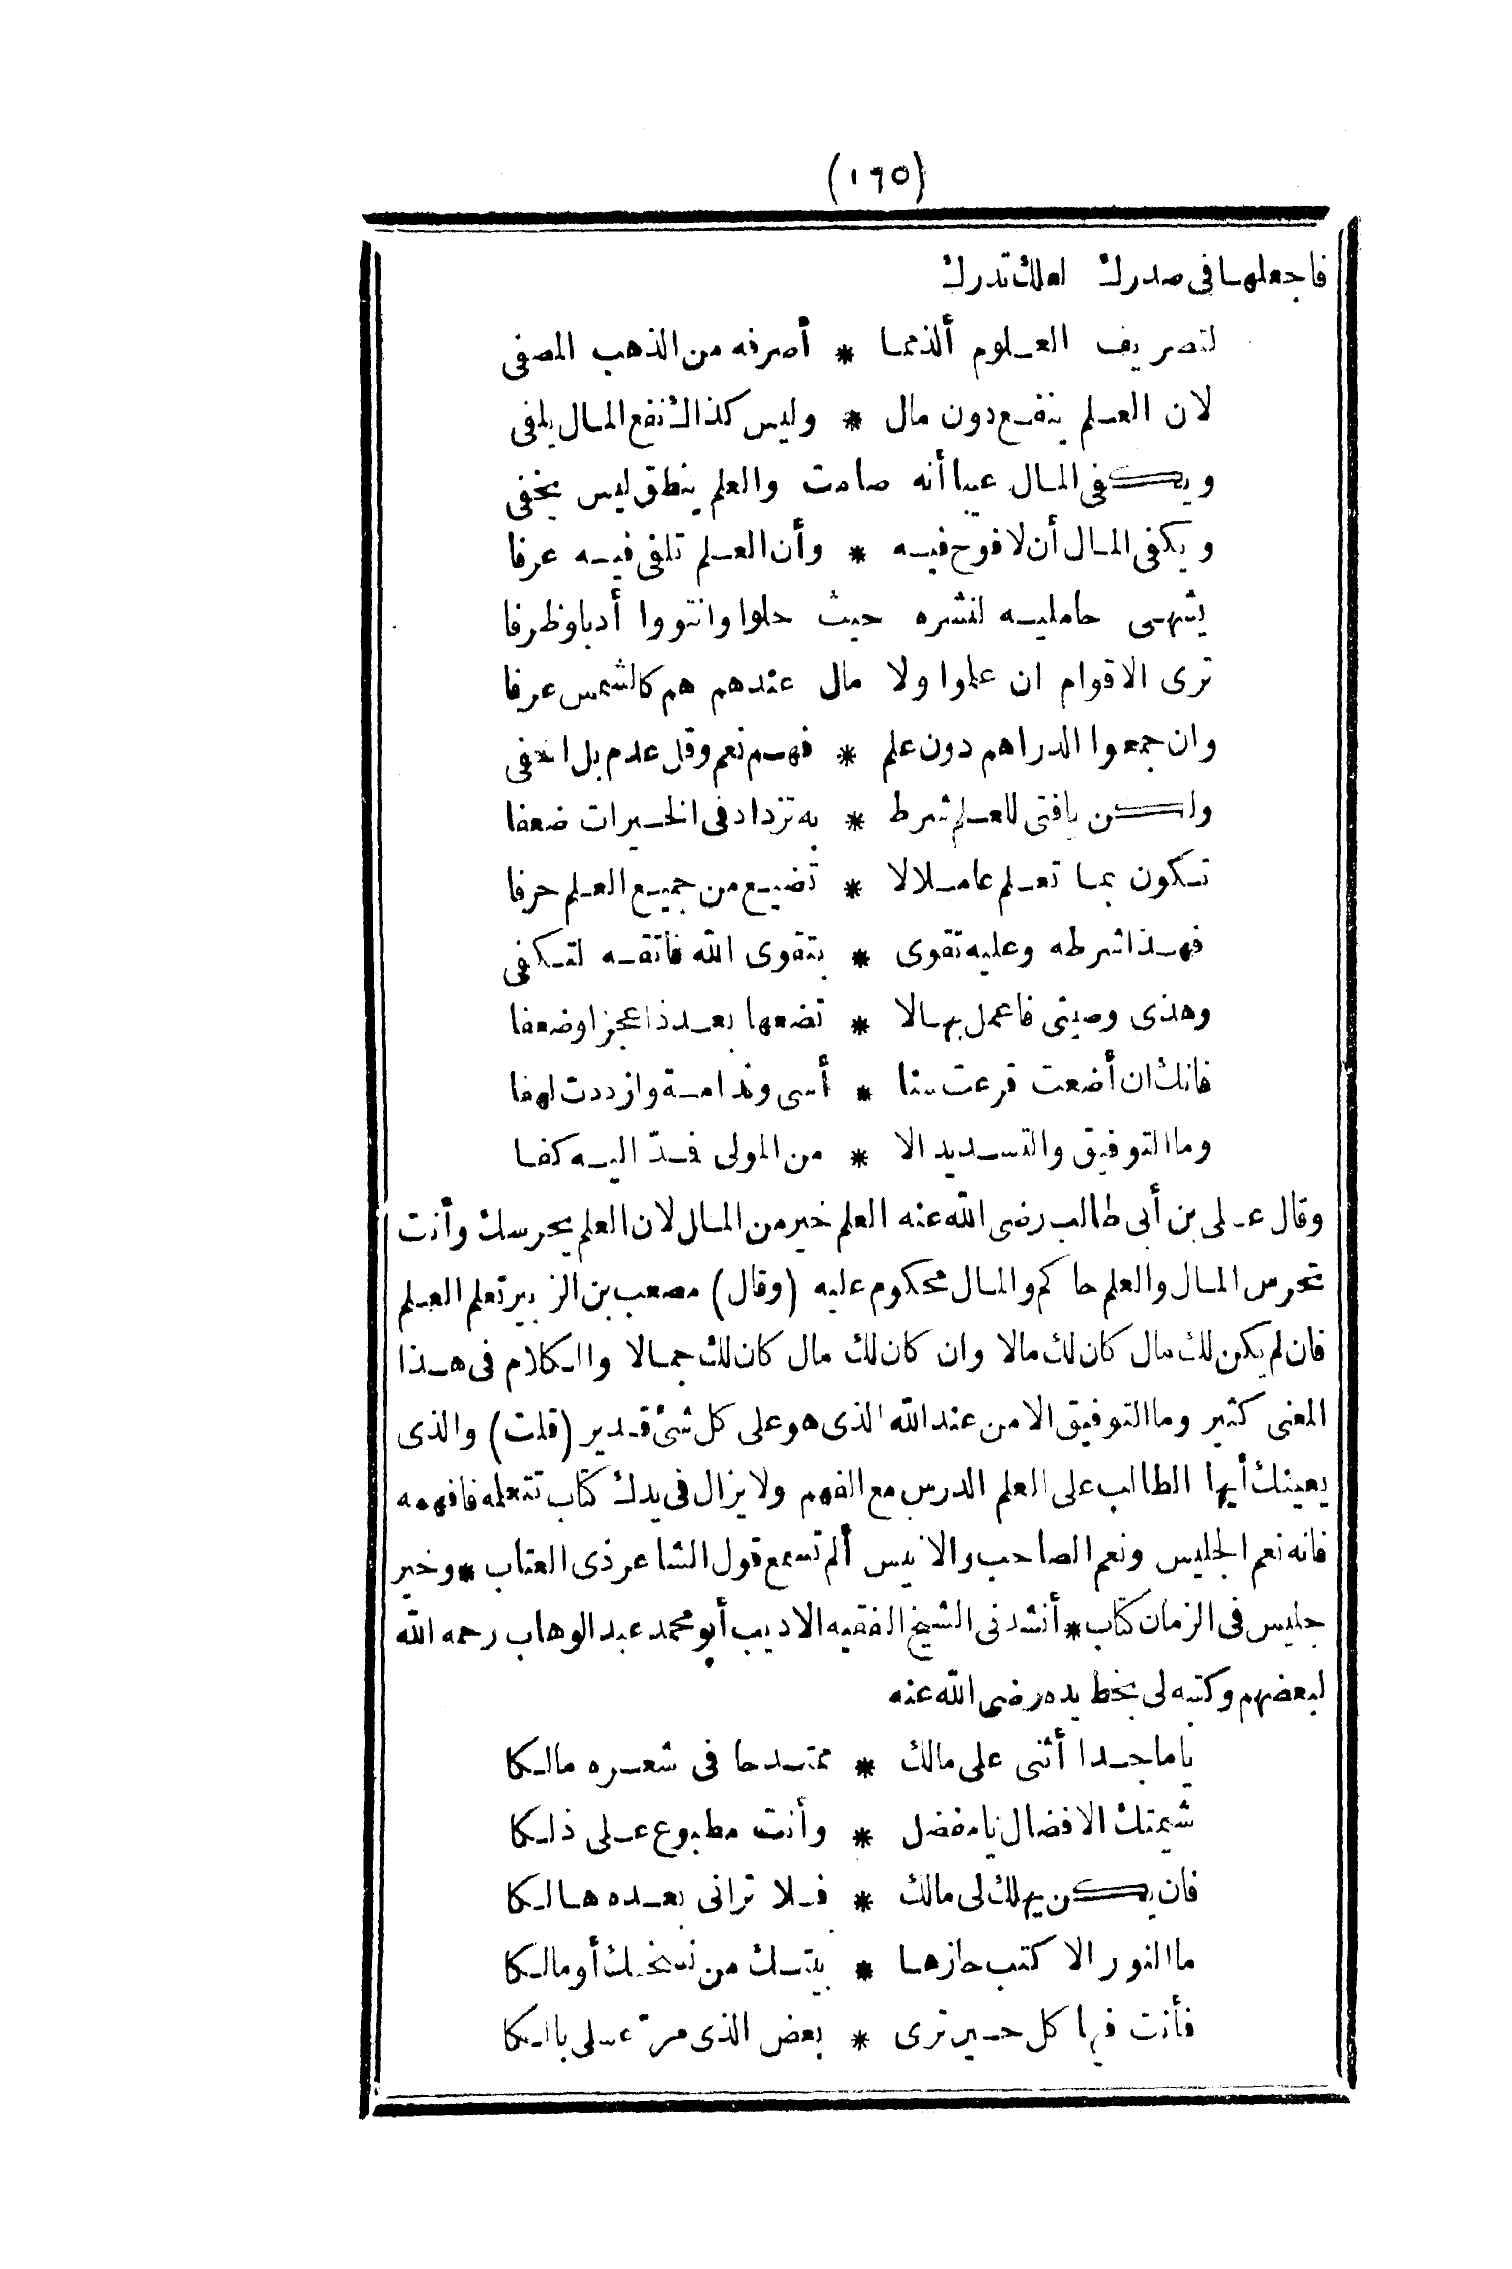 (١٩٥)
فاجعلها فى صدرك لعلك تدرك
لتصريف العلوم ألذ مما * أصرفه من الذهب المصفى
لان العلم ينفع دون مال * وليس كذاك نفع المال يلفى
ويكفى المال عيبا أنه صامت والعلم ينطق ليس يخفى
ويكفى المال أن لا فوح فيه * وأن العلم تلقى فيه عرفا
يشهى حامليه لنشره حيث حلوا وانتووا أدبا وظرفا
ترى الاقوام ان علموا ولا مال عندهم هم كالشمس عرفا
وان جمعوا الدراهم دون علم * فهم نعم وقل عدم بل اخفى
ولكن يا فتى للعلم شرط * به تزداد فى الخيرات ضعفا
تكون بما تعلم عاملا لا * تضيع من جميع العلم حرفا
فهذا شرطه وعليه تقوى * بتقوى الله فاتقه لتكفى
وهذى وصيتى فاعمل بها لا * تضعها بعد ذا عجزا وضعفا
فانك ان أضعت قرعت سنا * أسى وندامة وازددت لهفا
وما التوفيق والتسديد الا * من المولى فمدّ اليه كفا
وقال على بن أبى طالب رضى الله عنه العلم خير من المال لان العلم يحرسك وأنت
تحرس المال والعلم حاكم والمال محكوم عليه (وقال) مصعب بن الزبير تعلم العلم
فان لم يكن لك مال كان لك مالا وان كان لك مال كان لك جمالا والكلام فى هذا
المعنى كثير وما التوفيق الا من عند الله الذى هو على كل شئ قدير (قلت) والذى
يعينك أيها الطالب على العلم الدرس مع الفهم ولا يزال فى يدك كتاب تتعلمه فافهمه
فانه نعم الجليس ونعم الصاحب والانيس ألم تسمع قول الشاعر ذى العتاب * وخير
جليس فى الزمان كتاب * أنشدنى الشيخ الفقيه الاديب أبو محمد عبد الوهاب رحمه الله
لبعضهم وكتبه لى بخط يده رضى الله عنه
يا ماجدا أثنى على مالك * ممتدحا فى شعره مالكا
شيمتك الافضال يا مفضل * وأنت مطبوع على ذلكا
فان يكن يهلك لى مالك * فلا ترانى بعده هالكا
ما النور الا كتب حازها * بيتك من نسخك أو مالكا
فأنت فيها كل حين ترى * بعض الذى مرّ على بالكا